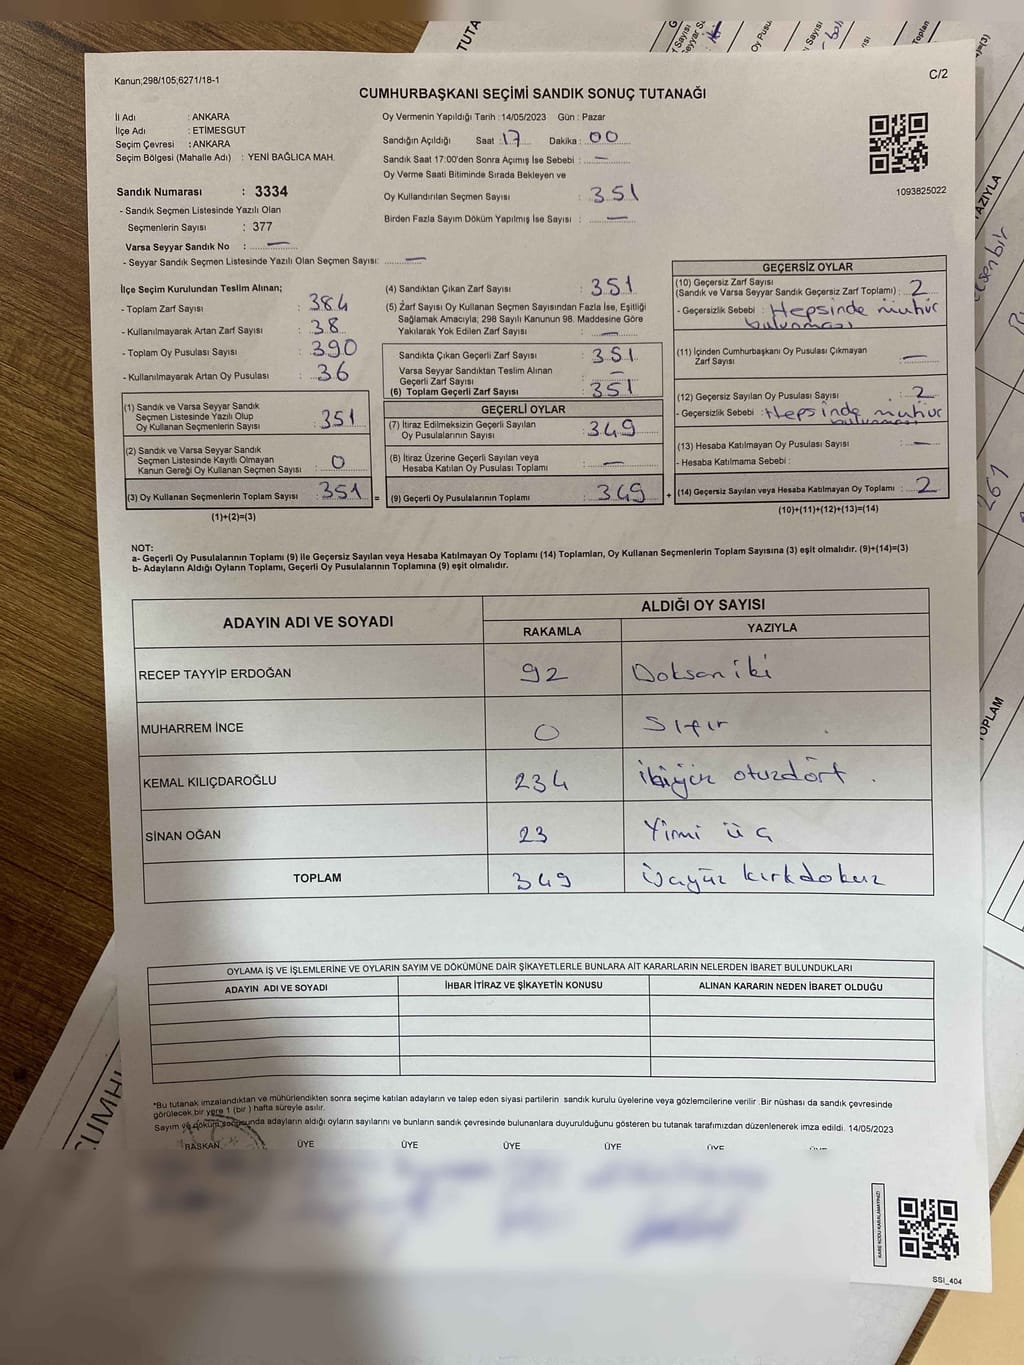 Kanun;298/105,6271/18-1
C/2
CUMHURBAŞKANI SEÇİMİ SANDIK SONUÇ TUTANAĞI
İl Adı : ANKARA
İlçe Adı : ETİMESGUT
Seçim Çevresi : ANKARA
Seçim Bölgesi (Mahalle Adı) : YENİ BAĞLICA MAH.
Sandık Numarası : 3334
- Sandık Seçmen Listesinde Yazılı Olan
Seçmenlerin Sayısı : 377
Varsa Seyyar Sandık No : —
- Seyyar Sandık Seçmen Listesinde Yazılı Olan Seçmen Sayısı: —
Oy Vermenin Yapıldığı Tarih : 14/05/2023 Gün : Pazar
Sandığın Açıldığı Saat : 17 Dakika : 00
Sandık Saat 17:00'den Sonra Açımış İse Sebebi : —
Oy Verme Saati Bitiminde Sırada Bekleyen ve
Oy Kullandırılan Seçmen Sayısı : 351
Birden Fazla Sayım Döküm Yapılmış İse Sayısı : —
1093825022
İlçe Seçim Kurulundan Teslim Alınan;
- Toplam Zarf Sayısı : 384
- Kullanılmayarak Artan Zarf Sayısı : 38
- Toplam Oy Pusulası Sayısı : 390
- Kullanılmayarak Artan Oy Pusulası : 36
(1) Sandık ve Varsa Seyyar Sandık
Seçmen Listesinde Yazılı Olup
Oy Kullanan Seçmenlerin Sayısı : 351
(2) Sandık ve Varsa Seyyar Sandık
Seçmen Listesinde Kayıtlı Olmayan
Kanun Gereği Oy Kullanan Seçmen Sayısı : 0
(3) Oy Kullanan Seçmenlerin Toplam Sayısı : 351 =
(1)+(2)=(3)
(4) Sandıktan Çıkan Zarf Sayısı : 351
(5) Zarf Sayısı Oy Kullanan Seçmen Sayısından Fazla İse, Eşitliği
Sağlamak Amacıyla; 298 Sayılı Kanunun 98. Maddesine Göre
Yakılarak Yok Edilen Zarf Sayısı : —
Sandıkta Çıkan Geçerli Zarf Sayısı : 351
Varsa Seyyar Sandıktan Teslim Alınan
Geçerli Zarf Sayısı : —
(6) Toplam Geçerli Zarf Sayısı : 351
GEÇERLİ OYLAR
(7) İtiraz Edilmeksizin Geçerli Sayılan
Oy Pusulalarının Sayısı : 349
(8) İtiraz Üzerine Geçerli Sayılan veya
Hesaba Katılan Oy Pusulası Toplamı : —
(9) Geçerli Oy Pusulalarının Toplamı : 349 +
GEÇERSİZ OYLAR
(10) Geçersiz Zarf Sayısı
(Sandık ve Varsa Seyyar Sandık Geçersiz Zarf Toplamı) : 2
- Geçersizlik Sebebi : Hepsinde mühür
bulunması
(11) İçinden Cumhurbaşkanı Oy Pusulası Çıkmayan
Zarf Sayısı : —
(12) Geçersiz Sayılan Oy Pusulası Sayısı : 2
- Geçersizlik Sebebi : Hepsinde mühür
bulunması
(13) Hesaba Katılmayan Oy Pusulası Sayısı : —
- Hesaba Katılmama Sebebi :
(14) Geçersiz Sayılan veya Hesaba Katılmayan Oy Toplamı : 2
(10)+(11)+(12)+(13)=(14)
NOT:
a- Geçerli Oy Pusulalarının Toplamı (9) ile Geçersiz Sayılan veya Hesaba Katılmayan Oy Toplamı (14) Toplamları, Oy Kullanan Seçmenlerin Toplam Sayısına (3) eşit olmalıdır. (9)+(14)=(3)
b- Adayların Aldığı Oyların Toplamı, Geçerli Oy Pusulalarının Toplamına (9) eşit olmalıdır.
ADAYIN ADI VE SOYADI ALDIĞI OY SAYISI
RAKAMLA YAZIYLA
RECEP TAYYİP ERDOĞAN 92 Doksan iki
MUHARREM İNCE 0 Sıfır
KEMAL KILIÇDAROĞLU 234 ikiyüz otuzdört
SİNAN OĞAN 23 Yirmi üç
TOPLAM 349 Üçyüz kırkdokuz
OYLAMA İŞ VE İŞLEMLERİNE VE OYLARIN SAYIM VE DÖKÜMÜNE DAİR ŞİKAYETLERLE BUNLARA AİT KARARLARIN NELERDEN İBARET BULUNDUKLARI
ADAYIN ADI VE SOYADI İHBAR İTİRAZ VE ŞİKAYETİN KONUSU ALINAN KARARIN NEDEN İBARET OLDUĞU
*Bu tutanak imzalandıktan ve mühürlendikten sonra seçime katılan adayların ve talep eden siyasi partilerin sandık kurulu üyelerine veya gözlemcilerine verilir .Bir nüshası da sandık çevresinde
görülecek bir yere 1 (bir ) hafta süreyle asılır.
Sayım ve döküm sonucunda adayların aldığı oyların sayılarını ve bunların sandık çevresinde bulunanlara duyurulduğunu gösteren bu tutanak tarafımızdan düzenlenerek imza edildi. 14/05/2023
BAŞKAN ÜYE ÜYE ÜYE ÜYE ÜYE
KARE KODU KARALAMAYINIZ!
SSI_404
TUTA
Oy Pusu
Toplan
YAZIYLA
261
TOPLAM
CUMHU